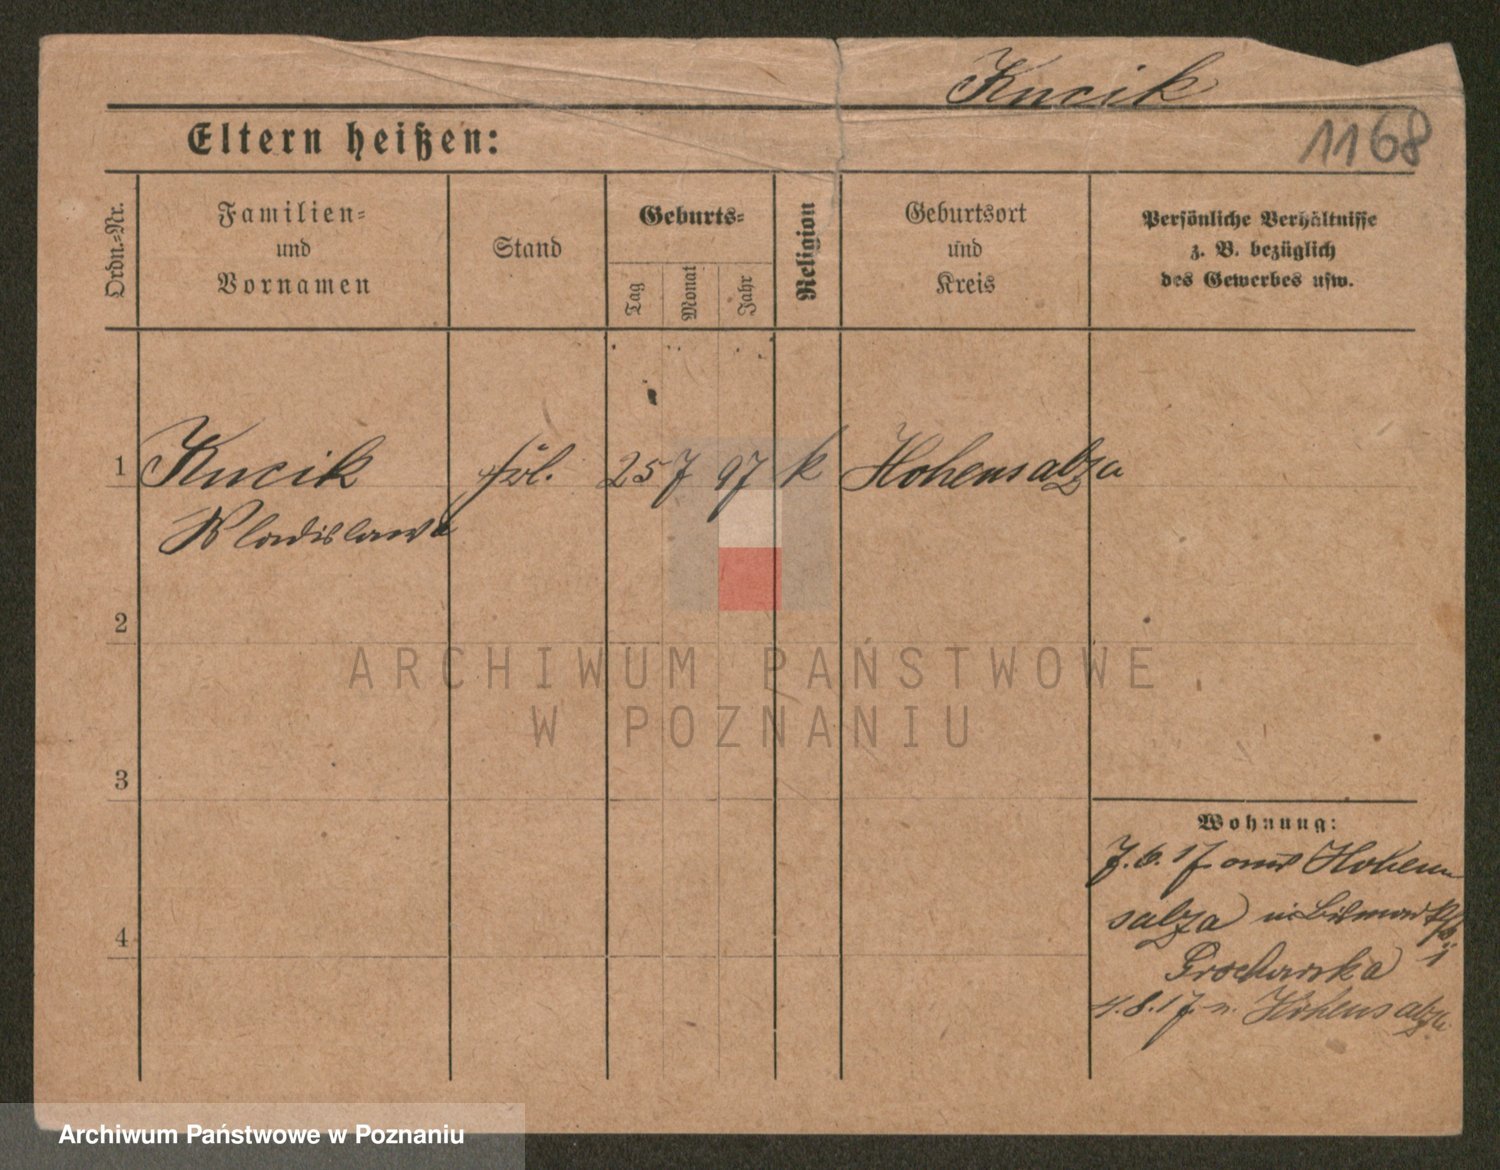 Kucik
1168
Eltern heißen:
Ordn.-Nr.
Familien-
und
Vornamen
Stand
Geburts-
Tag
Monat
Jahr
Religion
Geburtsort
und
Kreis
Persönliche Verhältnisse
z. B. bezüglich
des Gewerbes usw.
1 Kucik frl. 25 7 97 k Hohensalza
Wladislawa
2
3
4
Wohnung:
7.6.17. aus Hohen
salza
Prochowska
4.8.17. n. Hohensalza
ARCHIWUM PAŃSTWOWE
W POZNANIU
Archiwum Państwowe w Poznaniu